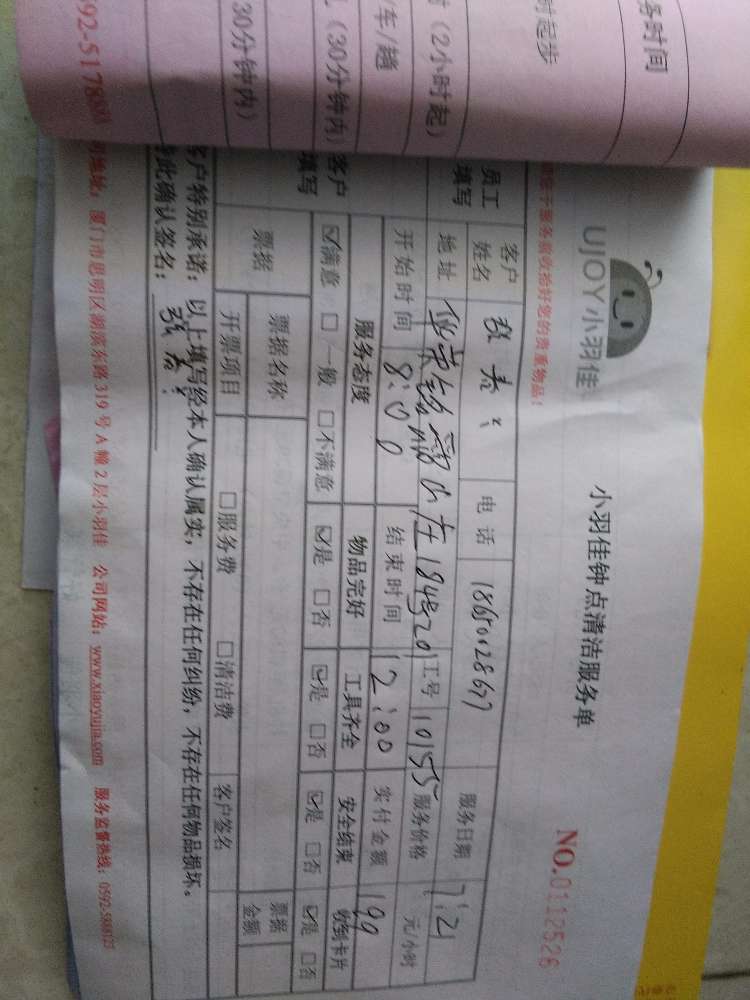 务时间
时起步
时(2小时起)
/车/趟
(30分钟内)
30分钟内)
92-5178
UJOY小羽佳
小羽佳钟点清洁服务单
NO.0112526
员工填写
客户姓名
电话
服务日期 7:21
地址
184号201
工号 10155
服务价格 元/小时
开始时间 8:00
结束时间 12:00
实付金额 199
客户填写
服务态度 物品完好 工具齐全 安全结束 收到卡片
☑满意 □一般 □不满意 ☑是 □否 ☑是 □否 ☑是 □否 ☑是 □否
票据 票据名称 票据金额
开票项目 □服务费 □清洁费 客户签名
客户特别承诺:以上填写经本人确认属实,不存在任何纠纷,不存在任何物品损坏。
此确认签名:
厦门市思明区湖滨东路319号A幢2层小羽佳 公司网站:www.xiaoyujia.com 服务监督热线: